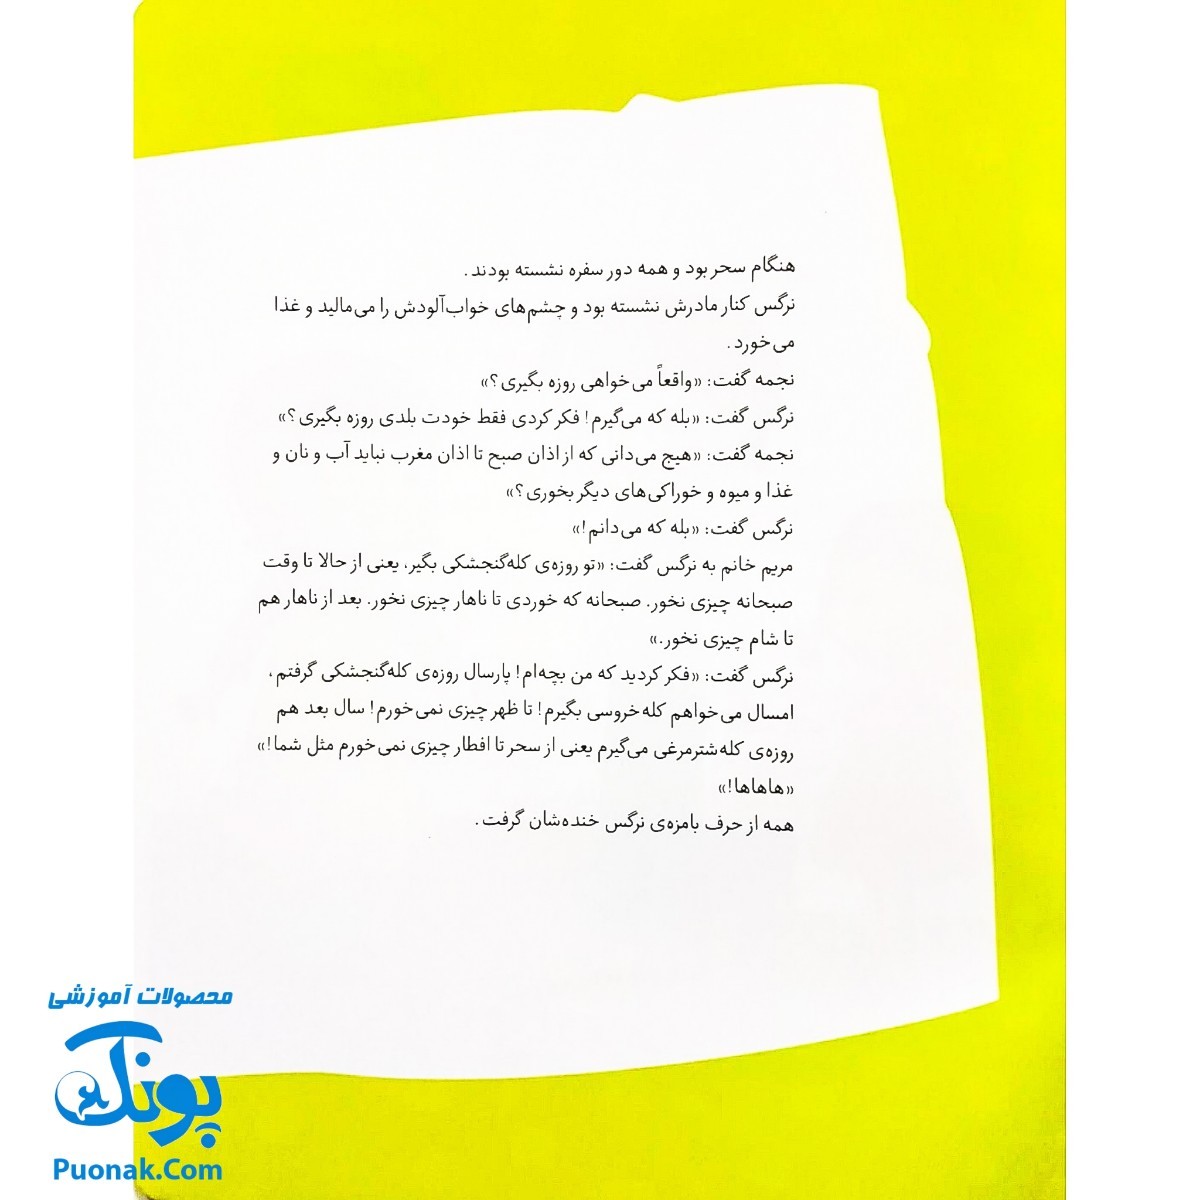 هنگام سحر بود و همه دور سفره نشسته بودند.
نرگس کنار مادرش نشسته بود و چشم‌های خواب‌آلودش را می‌مالید و غذا
می‌خورد.
نجمه گفت: «واقعاً می‌خواهی روزه بگیری؟»
نرگس گفت: «بله که می‌گیرم! فکر کردی فقط خودت بلدی روزه بگیری؟»
نجمه گفت: «هیچ می‌دانی که از اذان صبح تا اذان مغرب نباید آب و نان و
غذا و میوه و خوراکی‌های دیگر بخوری؟»
نرگس گفت: «بله که می‌دانم!»
مریم خانم به نرگس گفت: «تو روزه‌ی کله‌گنجشکی بگیر، یعنی از حالا تا وقت
صبحانه چیزی نخور. صبحانه که خوردی تا ناهار چیزی نخور. بعد از ناهار هم
تا شام چیزی نخور.»
نرگس گفت: «فکر کردید که من بچه‌ام! پارسال روزه‌ی کله‌گنجشکی گرفتم،
امسال می‌خواهم کله‌خروسی بگیرم! تا ظهر چیزی نمی‌خورم! سال بعد هم
روزه‌ی کله‌شترمرغی می‌گیرم یعنی از سحر تا افطار چیزی نمی‌خورم مثل شما!»
«هاهاها!»
همه از حرف بامزه‌ی نرگس خنده‌شان گرفت.
محصولات آموزشی
پونک
Puonak.Com